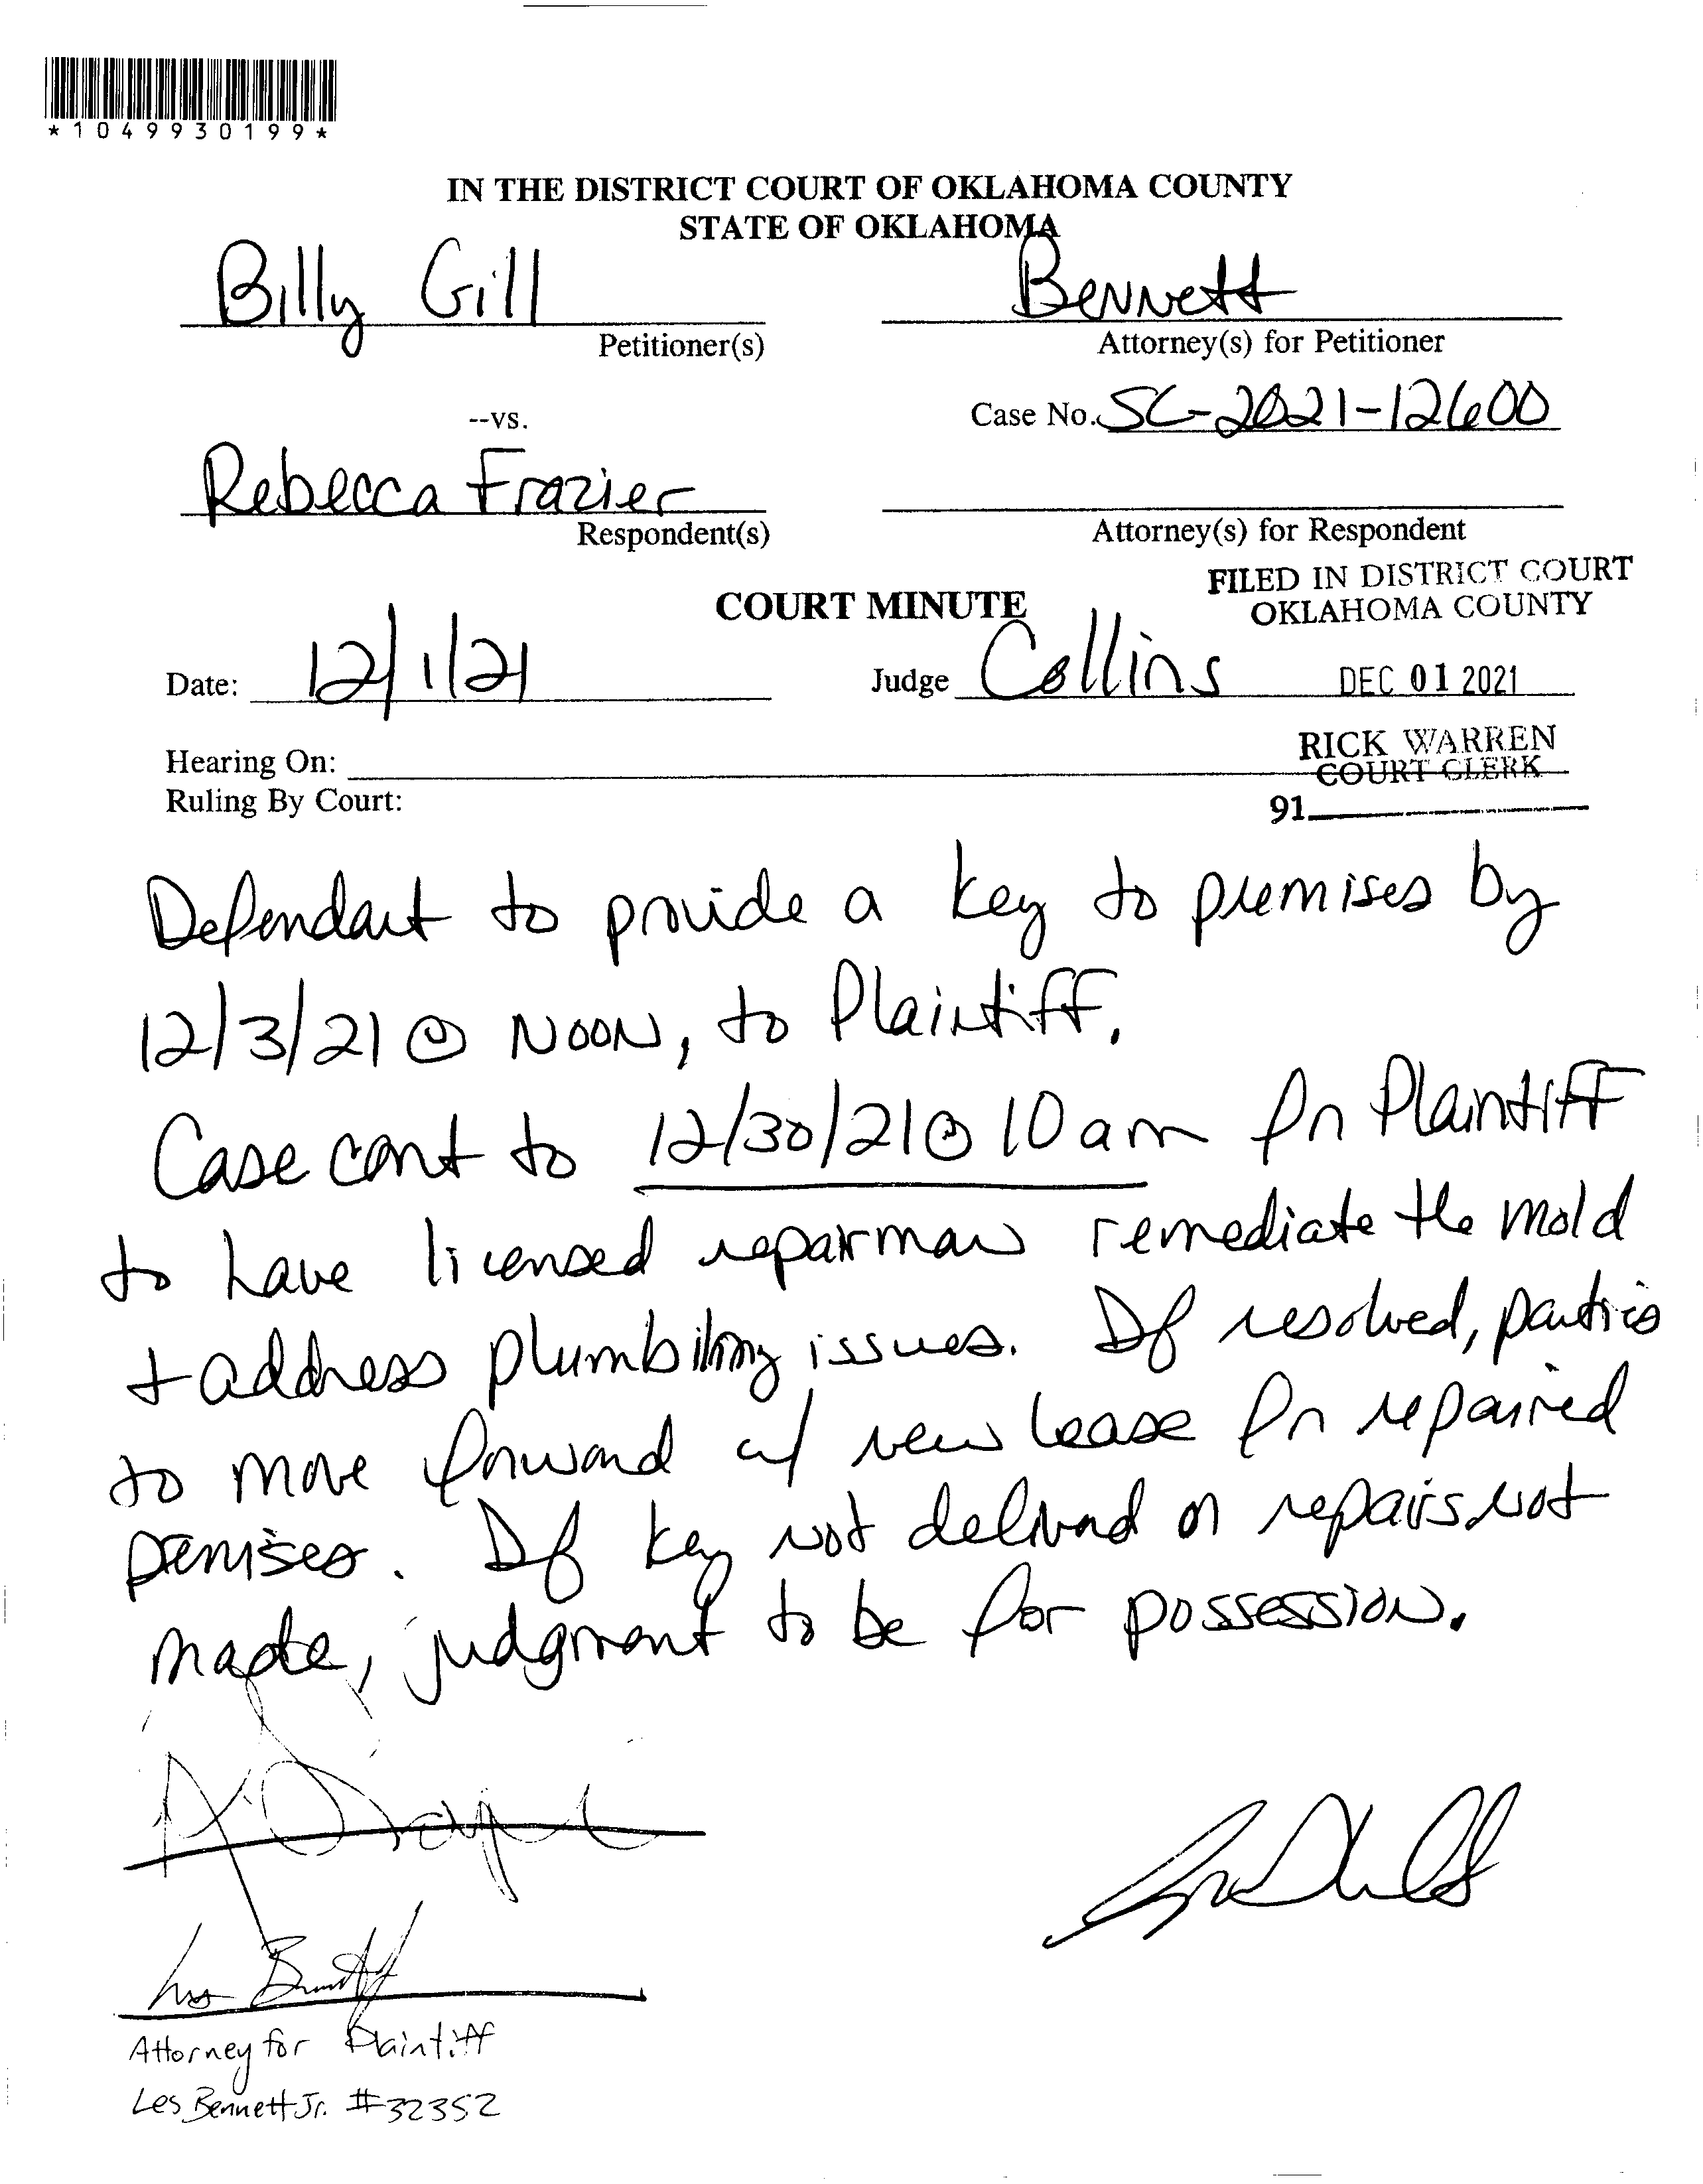 *1049930199*
IN THE DISTRICT COURT OF OKLAHOMA COUNTY
STATE OF OKLAHOMA
Billy Gill
Petitioner(s)
Bennett
Attorney(s) for Petitioner
--vs.
Case No. SC-2021-12600
Rebecca Frazier
Respondent(s)
Attorney(s) for Respondent
FILED IN DISTRICT COURT
OKLAHOMA COUNTY
COURT MINUTE
Date: 12/1/21
Judge Collins
DEC 01 2021
Hearing On:
RICK WARREN
COURT CLERK
Ruling By Court:
91
Defendant to provide a key to premises by
12/3/21 @ NOON, to Plaintiff.
Case cont to 12/30/21 @ 10 am for Plaintiff
to have licensed repairman remediate the mold
+ address plumbing issues. If resolved, parties
to move forward w/ new lease for repaired
premises. If key not delivered or repairs not
made, judgment to be for possession.
Les Bennett
Attorney for Plaintiff
Les Bennett Jr. #32352